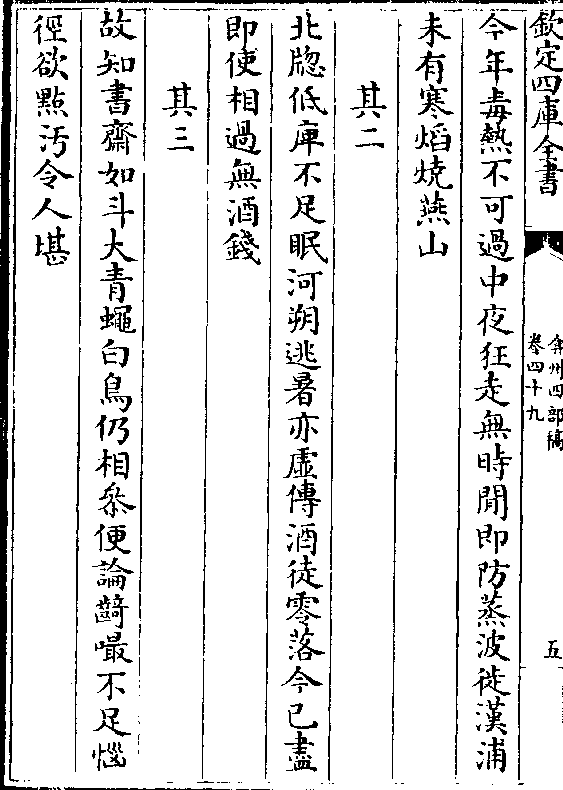 欽定四庫全書
弇州四部稿
卷四十九
五
今年毒熱不可過中夜狂走無時閒即防蒸波徙漢浦
未有寒熖燒燕山
其二
北牎低庳不足眠河朔逃暑亦虛傳酒徒零落今已盡
即使相過無酒錢
其三
故知書齋如斗大青蠅白鳥仍相叅便論齮嘬不足惱
徑欲點汚令人堪